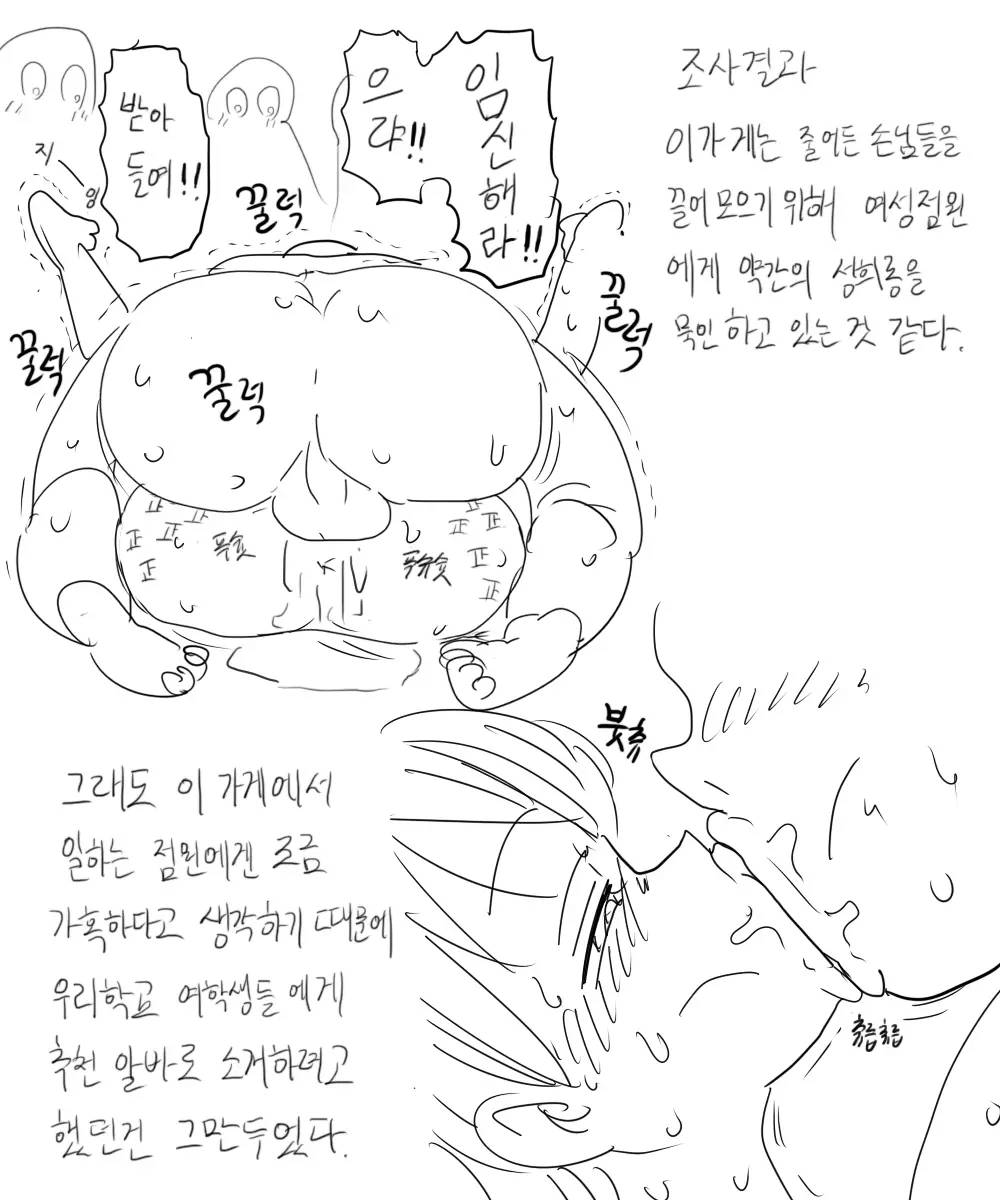 조사결과
이가게는 줄어든 손님들을
끌어모으기 위해 여성점원
에게 약간의 성희롱을
묵인하고 있는것 같다.
임신해라!!
으랴!!
받아
들여!!
지
잉
꿀럭
꿀럭
꿀럭
꿀럭
正
正
正
正
正
正
正
正
正
正
푸슛
푸슈슛
그래도 이 가게에서
일하는 점원에겐 조금
가혹하다고 생각하기 때문에
우리학교 여학생들에게
추천 알바로 소개하려고
했던건 그만두었다.
붓츄
츄릅츄릅